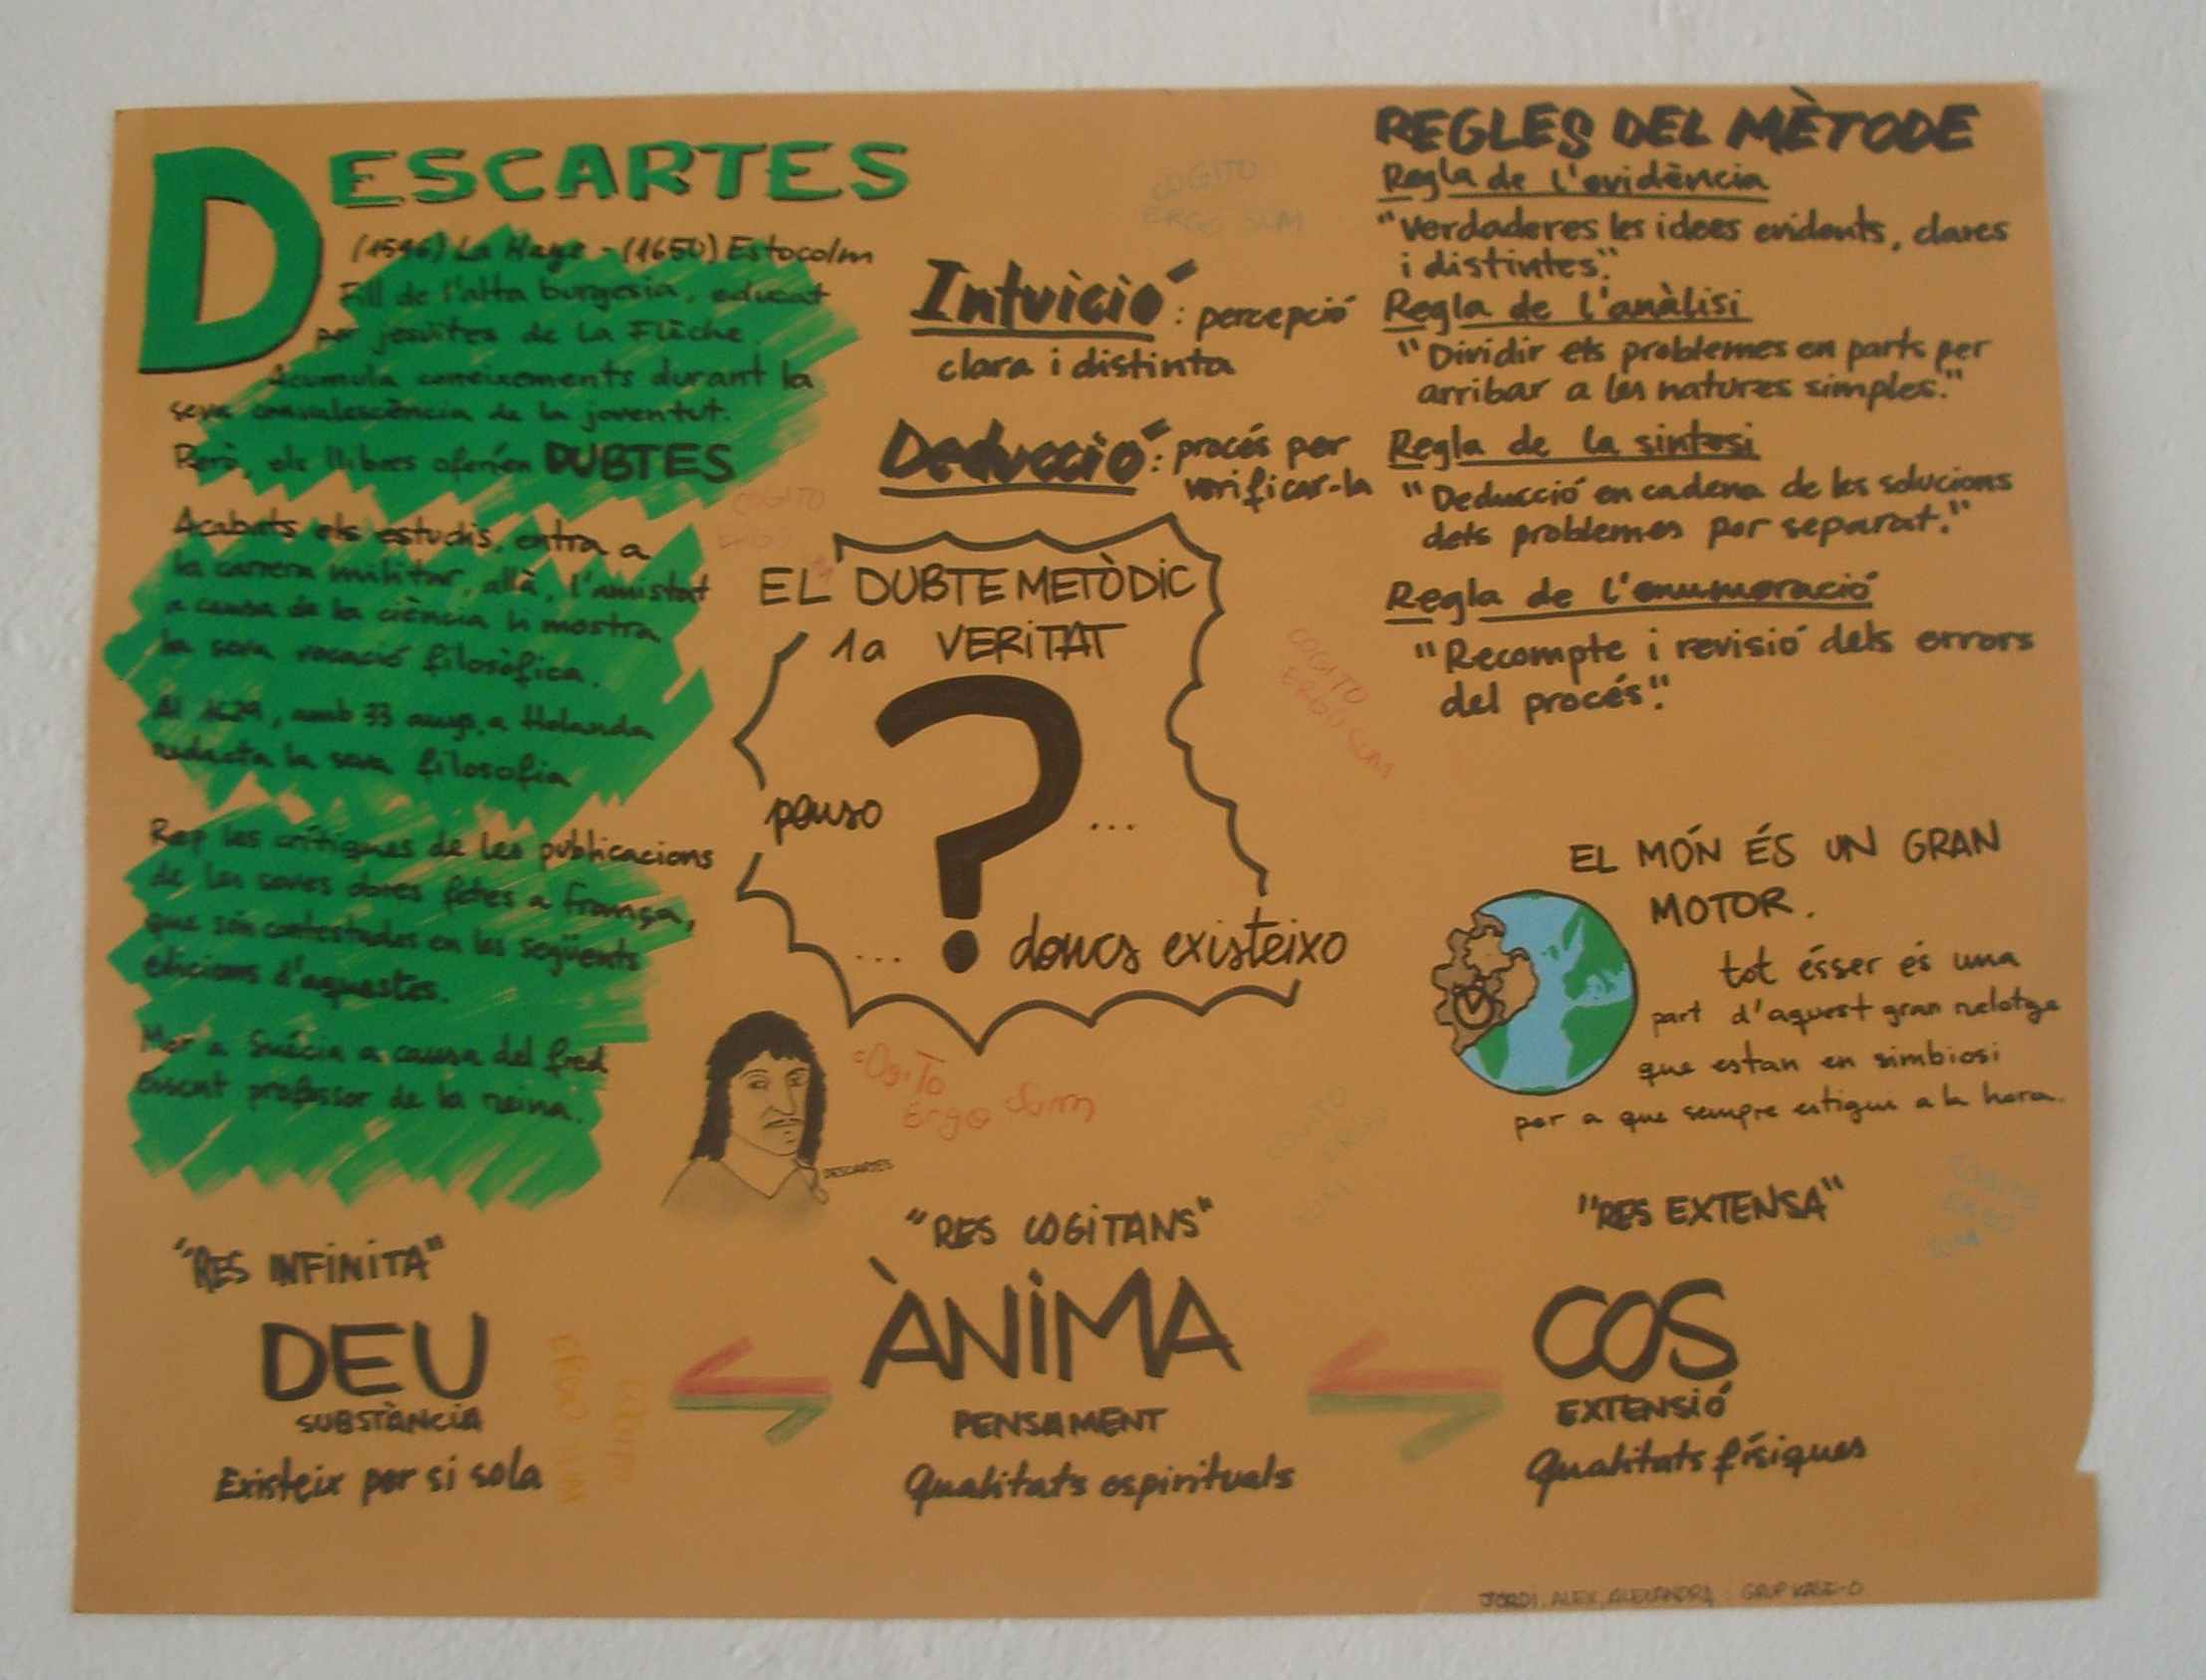 DESCARTES
(1596) La Haye - (1650) Estocolm
Fill de l'alta burgesia, educat
per jesuïtes de La Flèche.
Acumula coneixements durant la
seva convalescència de la joventut.
Però, els llibres oferien DUBTES
Acabats els estudis, entra a
la carrera militar, allà, l'amistat
a causa de la ciència li mostra
la seva vocació filosòfica.
Al 1629, amb 33 anys, a Holanda
redacta la seva filosofia
Rep les crítiques de les publicacions
de les seves obres fetes a França,
que són contestades en les següents
edicions d'aquestes.
Mor a Suècia a causa del fred
essent professor de la reina.
COGITO
ERGO SUM
Intuïció: percepció
clara i distinta
Deducció: procés per
verificar-la
COGITO
EL DUBTE METÒDIC
1a VERITAT
penso
?
...
... doncs existeixo
COGITO
ERGO SUM
COGITO
Ergo Sum
DESCARTES
REGLES DEL MÈTODE
Regla de l'evidència
"Verdaderes les idees evidents, clares
i distintes."
Regla de l'anàlisi
"Dividir els problemes en parts per
arribar a les natures simples."
Regla de la síntesi
"Deducció en cadena de les solucions
dels problemes per separat."
Regla de l'enumeració
"Recompte i revisió dels errors
del procés."
EL MÓN ÉS UN GRAN
MOTOR.
tot ésser és una
part d'aquest gran relotge
que estan en simbiosi
per a que sempre estigui a la hora.
"RES INFINITA"
DEU
SUBSTÀNCIA
Existeix per si sola
"RES COGITANS"
ÀNIMA
PENSAMENT
Qualitats espirituals
"RES EXTENSA"
COS
EXTENSIÓ
Qualitats físiques
JORDI, ALEX, ALEXANDRA : GRUP